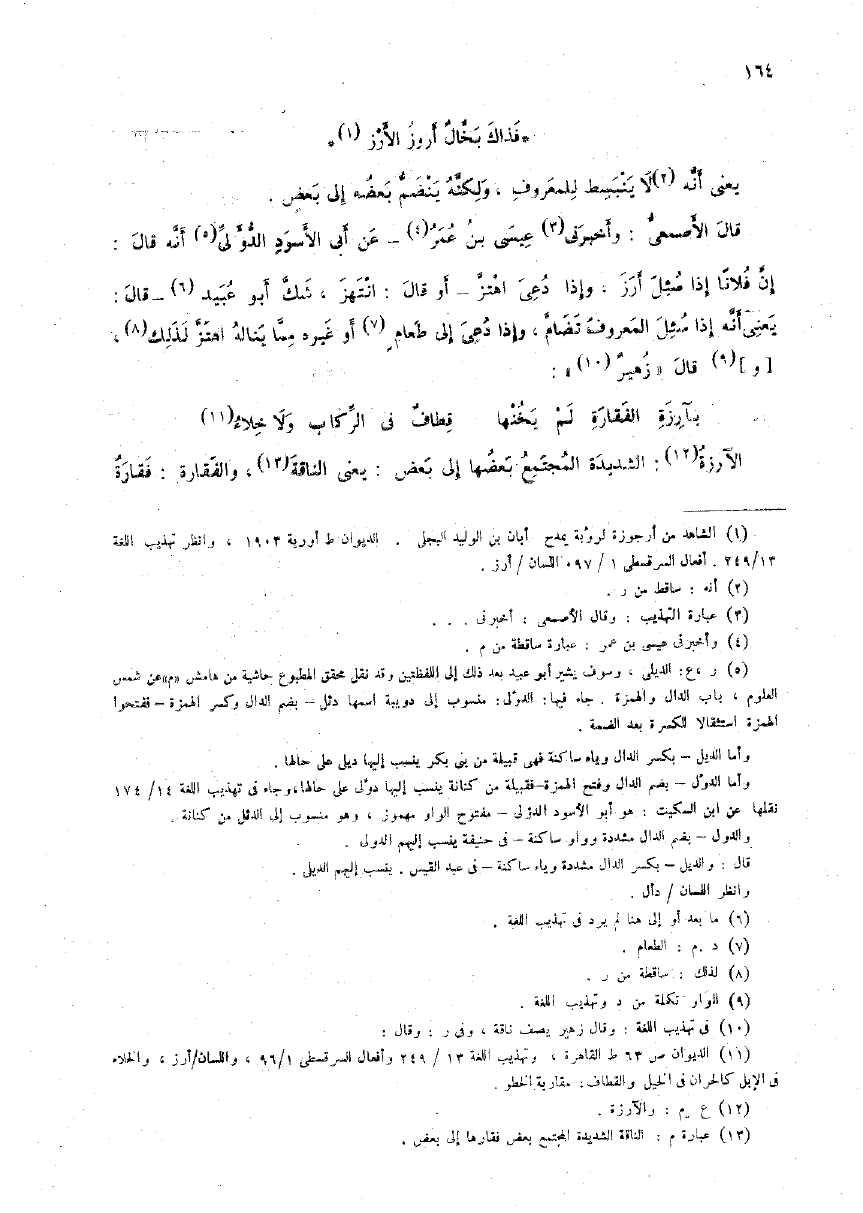 ١٦٤
*فَذاكَ بَخَّالٌ أَروزُ الأَرْزِ (١)*
يعنى أَنَّه (٢) لَا يَنْبَسِط لِلمَعروفِ ، وَلكِنَّهُ يَنْضَمُّ بَعضُه إلى بَعضٍ .
قالَ الأَصمعىُّ : وأَخبرَنى (٣) عِيسَى بنُ عُمَرُ (٤) – عَن أَبى الأَسوَدِ الدُّؤَلىِّ (٥) أَنَّه قالَ :
إنَّ فُلانًا إذا سُئِلَ أَرَزَ ، وإذا دُعِىَ اهْتزَّ – أو قالَ : انْتَهزَ ، شَكَّ أَبو عُبَيد (٦) – قالَ :
يَعنِى أَنَّه إذا سُئِلَ المَعروفَ تَضامَّ ، وإذا دُعِىَ إلى طَعامٍ (٧) أَو غَيره مِمَّا يَنالهُ اهتَزَّ لذَلِكَ (٨) ،
[ و ] (٩) قالَ « زُهيرٌ (١٠) » :
بآرِزَةِ الفَقارَةِ لَمْ يَخُنْها قِطافٌ فى الرِّكابِ وَلَا خِلاءُ (١١)
الآرزةُ (١٢) : الشديدَة المُجتَمِعُ بَعضُها إلى بَعض : يعنى الناقةَ (١٣) ، والفَقارة : فَقارَةُ
(١) الشاهد من أرجوزة لرؤبة يمدح أبان بن الوليد البجلى . الديوان ط أوربة ١٩٠٣ ، وانظر تهذيب اللغة
٢٤٩/١٣ . أفعال السرقسطى ١ / ٩٧ . اللسان / أرز .
(٢) أنه : ساقط من ر .
(٣) عبارة التهذيب : وقال الأصمعى : أخبرنى . . .
(٤) وأخبرنى عيسى بن عمر : عبارة ساقطة من م .
(٥) ر ، ع : الديلى ، وسوف يشير أبو عبيد بعد ذلك إلى اللفظتين وقد نقل محقق المطبوع حاشية من هامش «م» عن شمس
العلوم ، باب الدال والهمزة . جاء فيها : الدؤلى : منسوب إلى دويبة اسمها دئل – بضم الدال وكسر الهمزة – ففتحوا
الهمزة استثقالا للكسرة بعد الضمة .
وأما الديل – بكسر الدال وياء ساكنة فهى قبيلة من بنى بكر ينسب إليها ديلى على حالها .
وأما الدؤل – بضم الدال وفتح الهمزة – فقبيلة من كنانة ينسب إليها دؤلى على حالها ، وجاء فى تهذيب اللغة ١٤/ ١٧٤
نقلها عن ابن السكيت : هو أبو الأسود الدؤلى – مفتوح الواو مهموز ، وهو منسوب إلى الدئل من كنانة .
والدول – بضم الدال مشددة وواو ساكنة – فى حنيفة ينسب إليهم الدولى .
قال : والديل – بكسر الدال مشددة وياء ساكنة – فى عبد القيس . ينسب إليهم الديلى .
وانظر اللسان / دأل .
(٦) ما بعد أو إلى هنا لم يرد فى تهذيب اللغة .
(٧) د . م : الطعام .
(٨) لذلك : ساقطة من ر .
(٩) الواو تكلة من د وتهذيب اللغة .
(١٠) فى تهذيب اللغة : وقال زهير يصف ناقة ، وفى ر : وقال :
(١١) الديوان ص ٦٣ ط القاهرة ، وتهذيب اللغة ١٣ / ٢٤٩ وأفعال السرقسطى ٩٦/١ ، واللسان/أرز ، والخلاء
فى الإبل كالحران فى الخيل والقطاف : مقاربة الخطو .
(١٢) ع م : والآرزة .
(١٣) عبارة م : الناقة الشديدة المجتمع بعض فقارها إلى بعض .